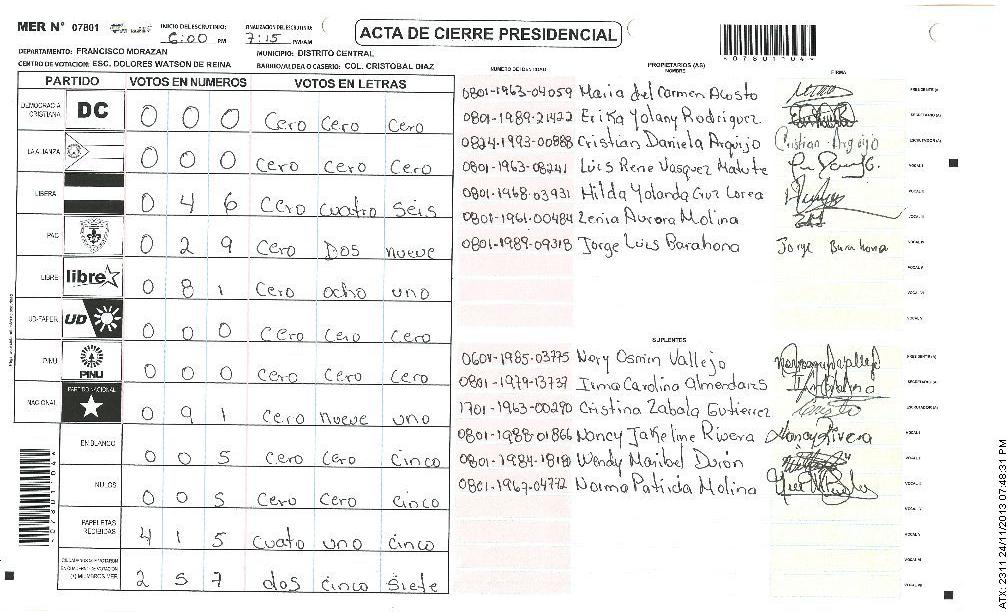 MER N° 07801 INICIO DEL ESCRUTINIO: 6:00 PM FINALIZACION DEL ESCRUTINIO: 7:15 PM/AM
ACTA DE CIERRE PRESIDENCIAL
*07801104*
DEPARTAMENTO: FRANCISCO MORAZAN MUNICIPIO: DISTRITO CENTRAL
CENTRO DE VOTACION: ESC. DOLORES WATSON DE REINA BARRIO/ALDEA O CASERIO: COL. CRISTOBAL DIAZ
PARTIDO VOTOS EN NUMEROS VOTOS EN LETRAS
DEMOCRACIA CRISTIANA DC 0 0 0 Cero Cero Cero
LA ALIANZA 0 0 0 Cero Cero Cero
LIBERAL 0 4 6 Cero cuatro seis
PAC 0 2 9 Cero Dos nueve
LIBRE libre 0 8 1 Cero ocho uno
UD-FAPER UD 0 0 0 Cero Cero Cero
PINU PINU 0 0 0 Cero Cero Cero
NACIONAL PARTIDO NACIONAL 0 9 1 Cero nueve uno
EN BLANCO 0 0 5 Cero Cero Cinco
NULOS 0 0 5 Cero Cero Cinco
PAPELETAS RECIBIDAS 4 1 5 Cuatro uno Cinco
(+) MIEMBROS MER 2 5 7 dos Cinco Siete
NUMERO DE IDENTIDAD PROPIETARIOS (AS) NOMBRE FIRMA
0801-1963-04059 Maria del Carmen Acosto PRESIDENTE (A)
0801-1989-21422 Erika Yolany Rodriguez SECRETARIO (A)
0824-1993-00888 Cristian Daniela Arguijo Cristian Arguijo ESCRUTADOR (A)
0801-1963-08241 Luis Rene Vasquez Matute VOCAL I
0801-1968-03931 Hilda Yolanda Cruz Lorea VOCAL II
0801-1961-00484 Zenia Aurora Molina VOCAL III
0801-1989-09318 Jorge Luis Barahona Jorge Barahona VOCAL IV
VOCAL V
VOCAL VI
VOCAL VII
SUPLENTES
0601-1985-03775 Nory Osmin Vallejo PRESIDENTE (A)
0801-1979-13737 Irma Carolina Almendares SECRETARIO (A)
1701-1963-00290 Cristina Zabala Gutierrez ESCRUTADOR (A)
0801-1988-01866 Nancy Jakeline Rivera Nancy Rivera VOCAL I
0801-1984-1818 Wendy Maribel Durón VOCAL II
0801-1967-04772 Norma Patricia Molina VOCAL III
VOCAL IV
VOCAL V
VOCAL VI
VOCAL VII
*07801104*
ATX: 2311 24/11/2013 07:48:31 PM